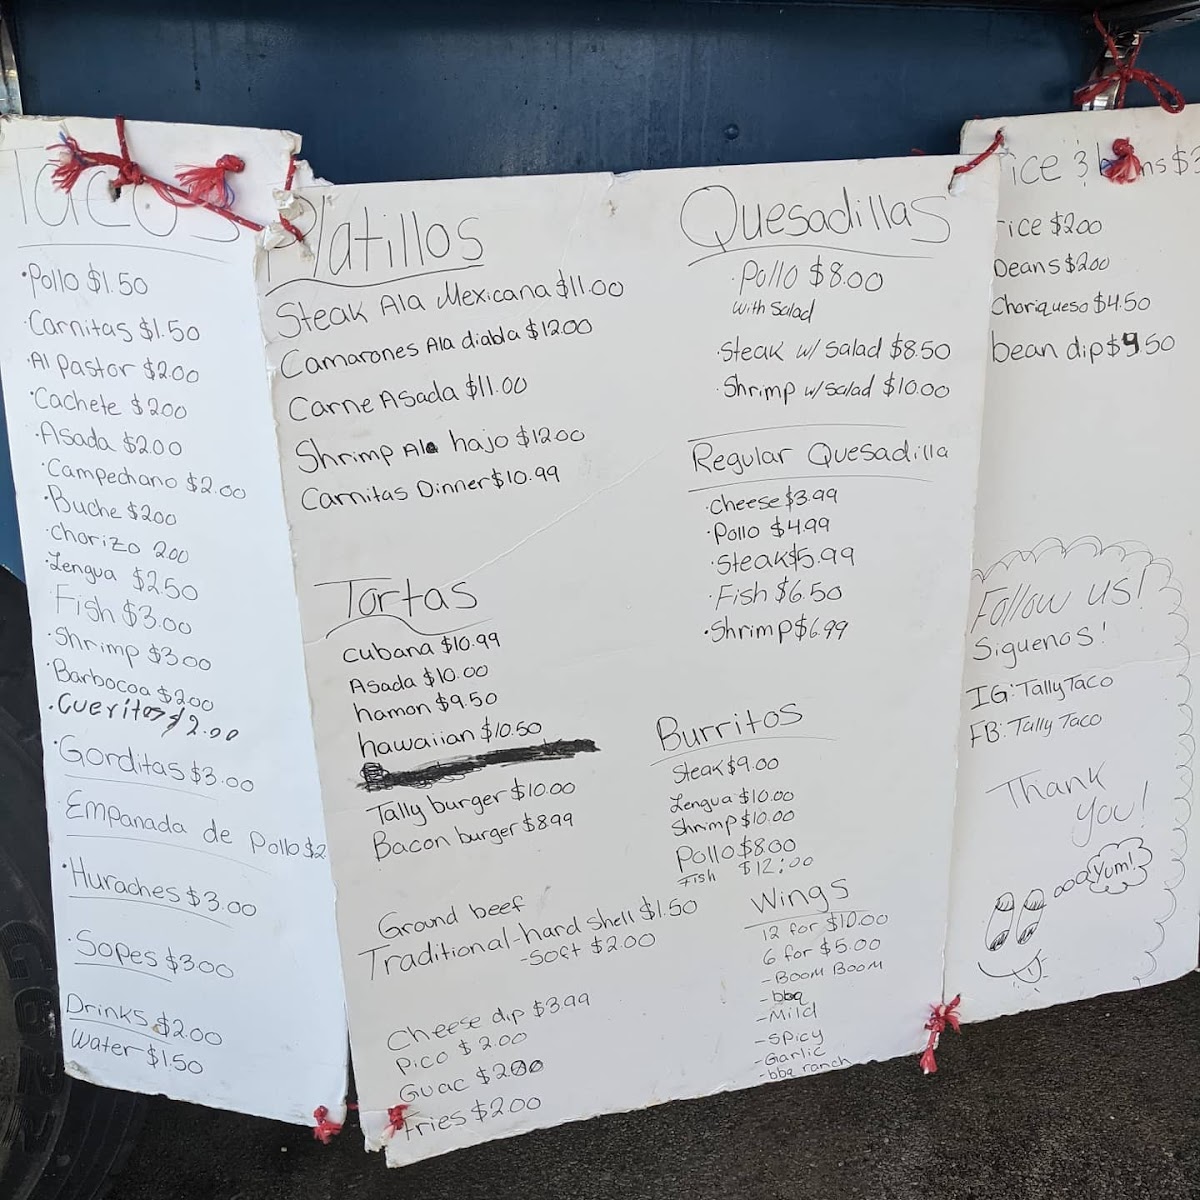 Tacos
·Pollo $1.50
·Carnitas $1.50
·Al Pastor $2.00
·Cachete $2.00
·Asada $2.00
·Campechano $2.00
·Buche $2.00
·Chorizo 2.00
·Lengua $2.50
Fish $3.00
·Shrimp $3.00
·Barbocoa $2.00
·Cueritos $2.00
·Gorditas $3.00
Empanada de Pollo $2
·Huraches $3.00
·Sopes $3.00
Drinks $2.00
Water $1.50
Platillos
Steak Ala Mexicana $11.00
Camarones Ala diabla $12.00
Carne Asada $11.00
Shrimp Ala hajo $12.00
Carnitas Dinner $10.99
Tortas
Cubana $10.99
Asada $10.00
hamon $9.50
hawaiian $10.50
Tally burger $10.00
Bacon burger $8.99
Ground beef
Traditional-hard Shell $1.50
-Soft $2.00
Cheese dip $3.99
Pico $2.00
Guac $2.00
Fries $2.00
Quesadillas
·Pollo $8.00
with Salad
·Steak w/ Salad $8.50
·Shrimp w/Salad $10.00
Regular Quesadilla
·Cheese $3.99
·Pollo $4.99
·Steak $5.99
·Fish $6.50
·Shrimp $6.99
Burritos
Steak $9.00
Lengua $10.00
Shrimp $10.00
Pollo $8.00
Fish $12:00
Wings
12 for $10.00
6 for $5.00
-Boom Boom
-bbq
-Mild
-Spicy
-Garlic
-bbq ranch
ice & ns $3
ice $2.00
Beans $2.00
Choriqueso $4.50
bean dip $9.50
Follow us!
Siguenos!
IG: TallyTaco
FB: Tally Taco
Thank
you!
Yum!